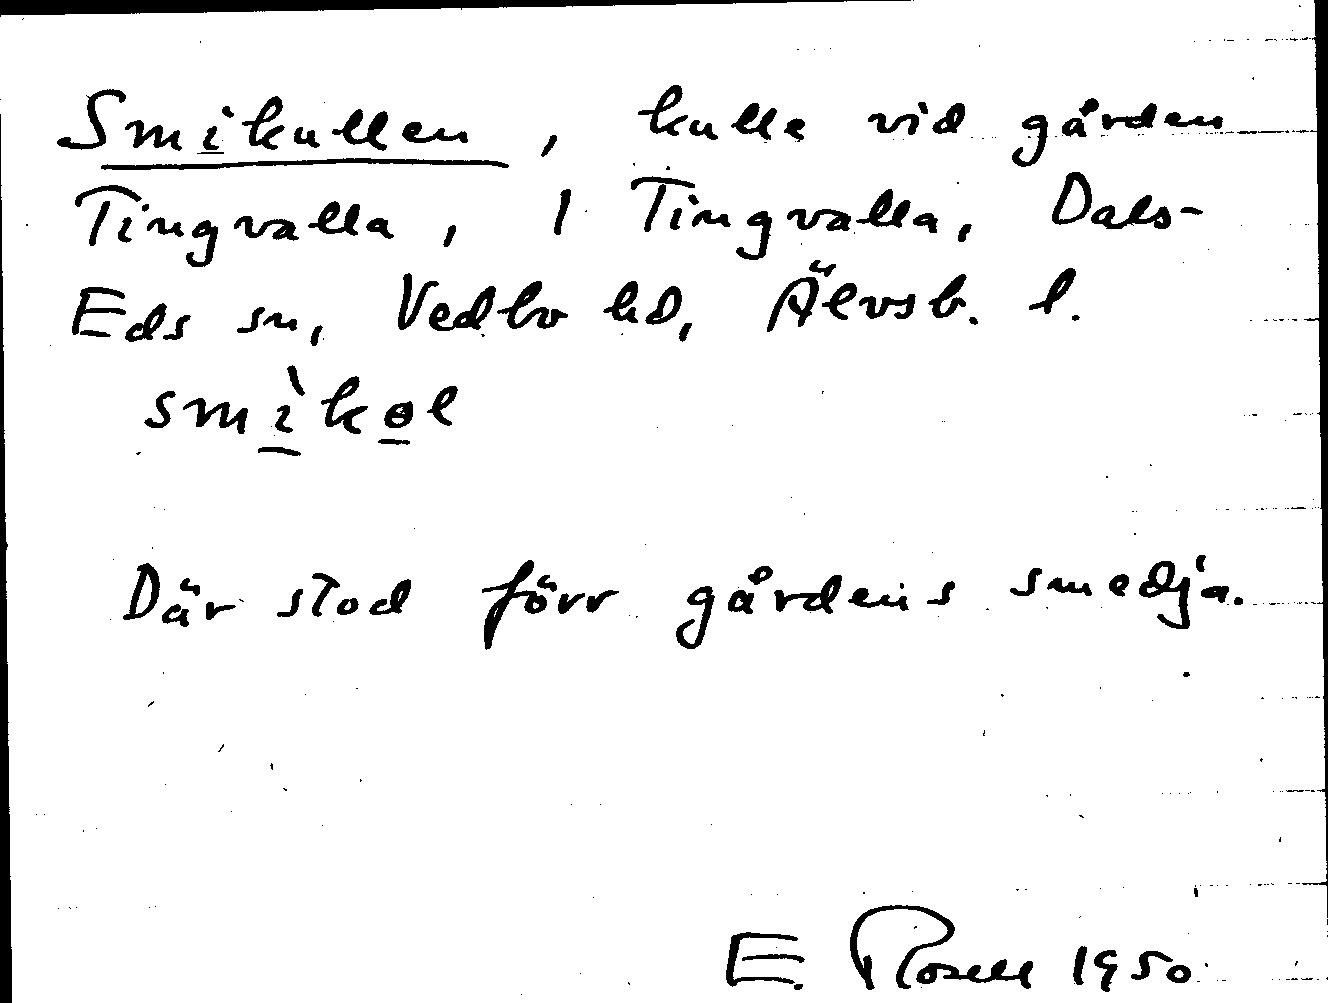 Smikullen, kulle vid gården
Tingvalla, 1 Tingvalla, Dals-
Eds sn, Vedbo hd, Älvsb. l.
smìkɵl
Där stod förr gårdens smedja.
E. Rosell 1950